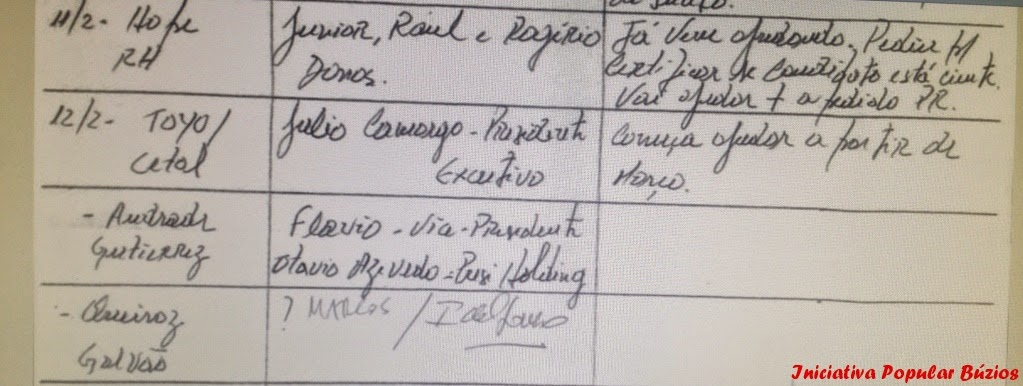 11/2- Hope
RH
Junior, Raul e Rogério
Donos.
Já vem ajudando. Pediu p/
certificar se candidato está ciente.
Vai ajudar + a pedido PR.
12/2- TOYO/
Cetal
Julio Camargo - Presidente
Executivo
Começa ajudar a partir de
Março.
- Andrade
Gutierrez
Flavio - Vice-Presidente
Otavio Azevedo - Presi Holding
- Queiroz
Galvão
? MARCOS / Idelfonso
Iniciativa Popular Búzios